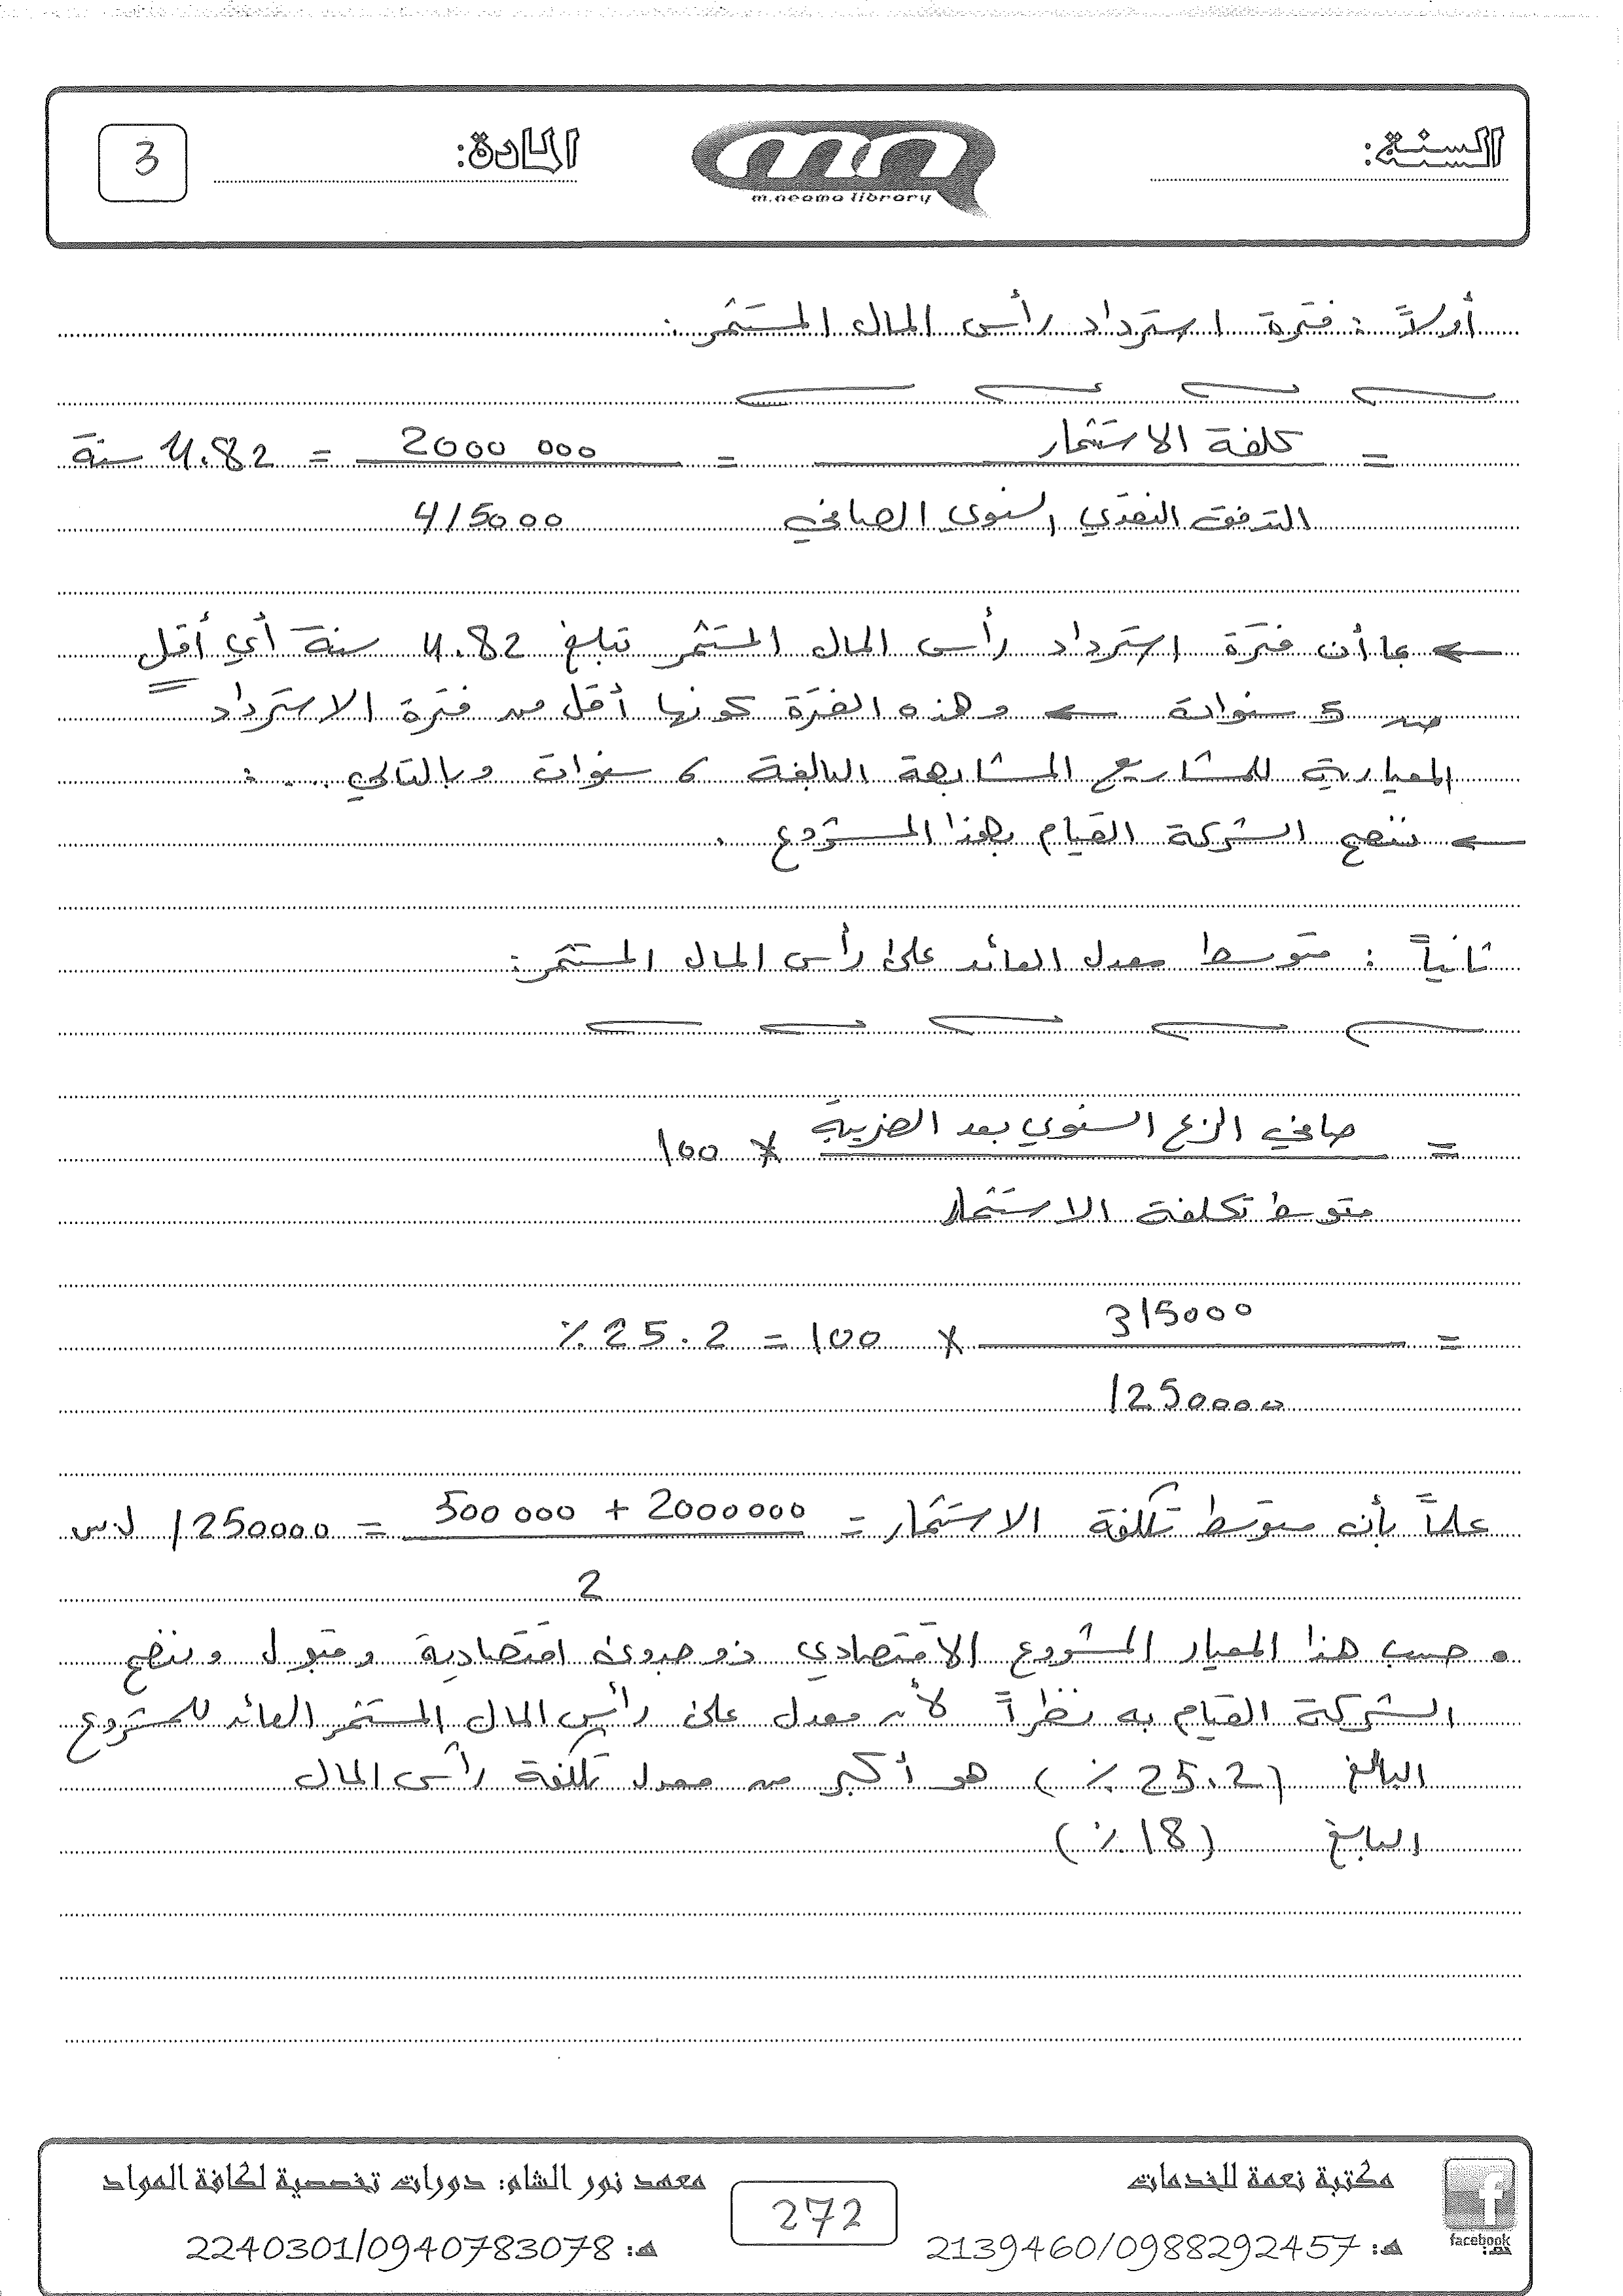 السنة:
m.neama library
المادة:
3
أولاً : فترة استرداد رأس المال المستثمر :
= كلفة الاستثمار = 2000 000 = 4.82 سنة
التدفق النقدي السنوي الصافي 415000
← بما أن فترة استرداد رأس المال المستثمر تبلغ 4.82 سنة أي أقل
من 5 سنوات ← وهذه الفترة كونها أقل من فترة الاسترداد
المعيارية للمشاريع المشابهة البالغة 6 سنوات وبالتالي ... :
← ننصح الشركة القيام بهذا المشروع .
ثانياً : متوسط معدل العائد على رأس المال المستثمر :
= صافي الربح السنوي بعد الضريبة × 100
متوسط تكلفة الاستثمار
= 315000 × 100 = 25.2 %
1250000
علماً بأن متوسط تكلفة الاستثمار = 2000000 + 500 000 = 1250000 ل.س
2
• حسب هذا المعيار المشروع الاقتصادي ذو جدوى اقتصادية ومقبول وننصح
الشركة القيام به نظراً لأن معدل على رأس المال المستثمر العائد للمشروع
البالغ (25.2 %) هو أكبر من معدل تكلفة رأس المال
البالغ (18 %)
facebook
مكتبة نعمة للخدمات
هـ: 2139460/0988292457
272
معهد نور الشام: دورات تخصصية لكافة المواد
هـ: 2240301/0940783078